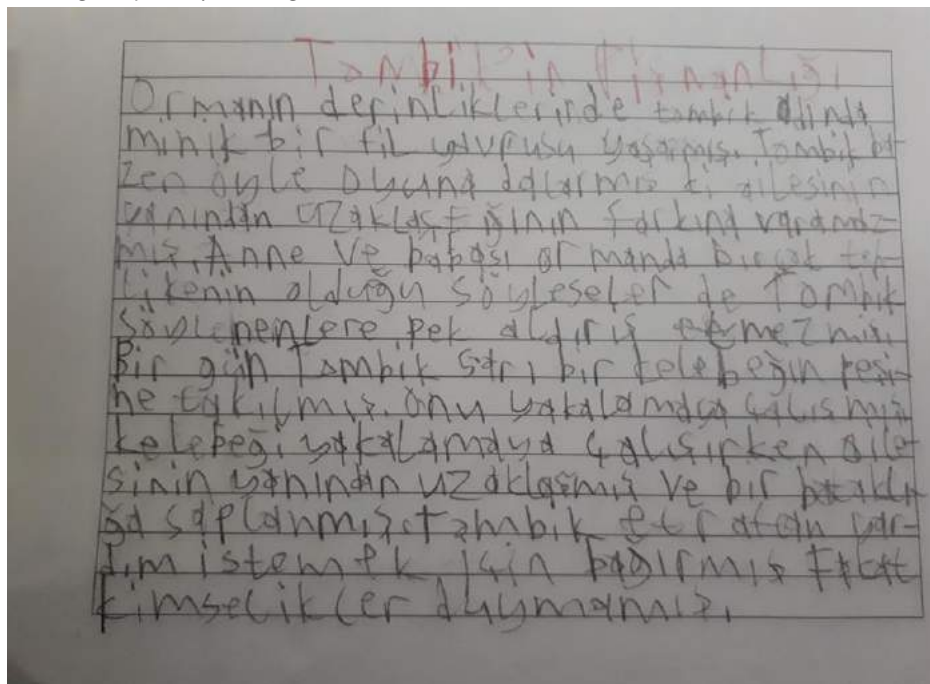 Tombik'in Pişmanlığı
Ormanın derinliklerinde tombik adında
minik bir fil yavrusu yaşarmış. Tombik ba-
zen öyle oyuna dalarmış ki ailesinin
yanından uzaklaştığının farkına varamaz-
mış. Anne ve babası ormanda birçok teh-
likenin olduğu söyleseler de Tombik
söylenenlere pek aldırış etmezmiş.
Bir gün Tombik sarı bir kelebeğin peşi-
ne takılmış. Onu yakalamaya çalışmış
kelebeği yakalamaya çalışırken aile-
sinin yanından uzaklaşmış ve bir bataklı-
ğa saplanmış. Tombik etraftan yar-
dım istemek için bağırmış fakat
kimselikler duymamış.